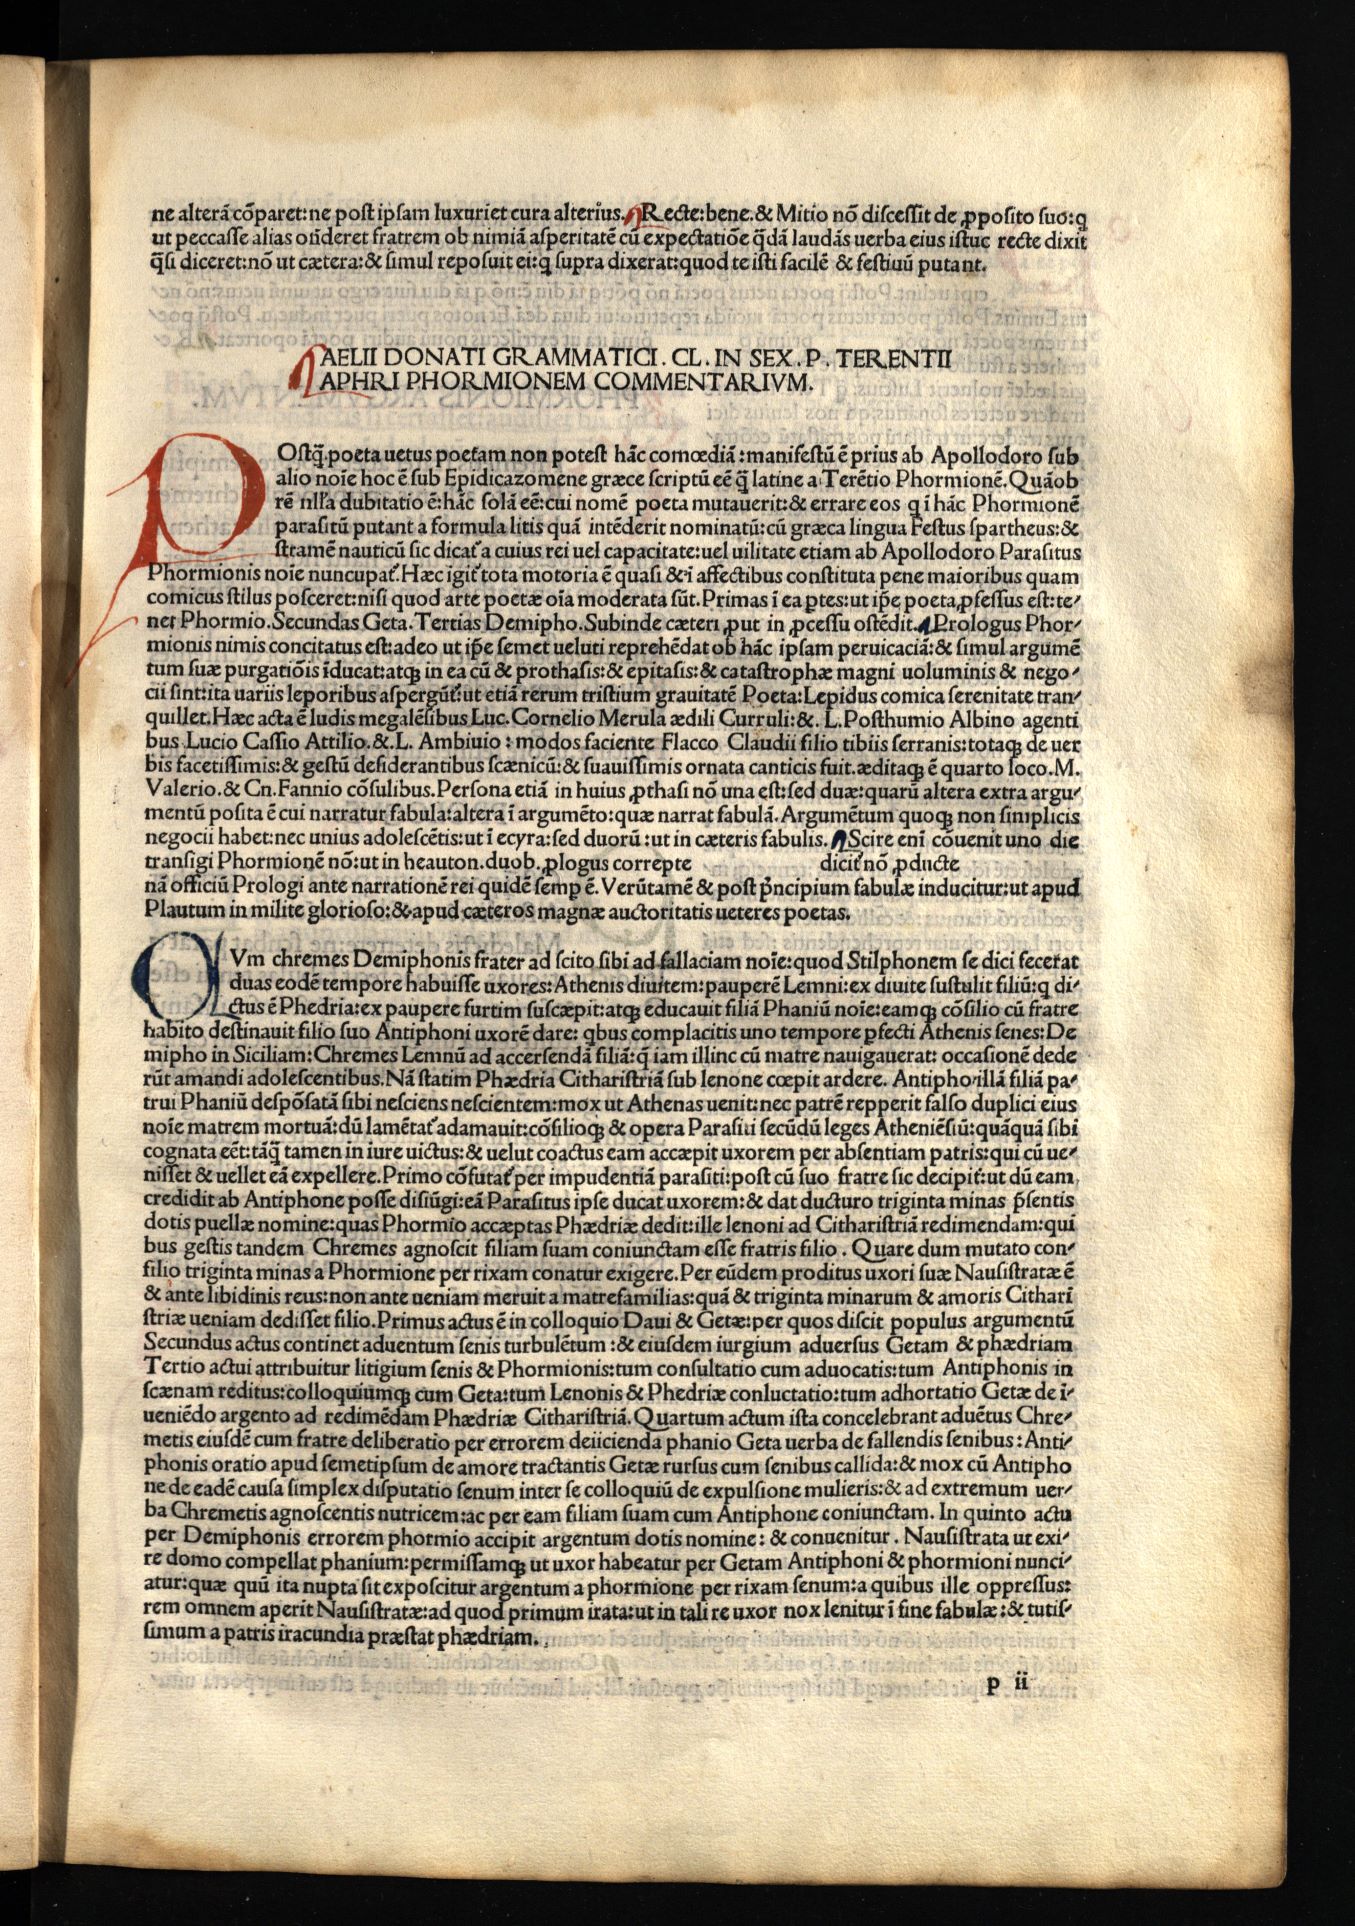 ne alterã cõparet:ne post ipsam luxuriet cura alterius. Recte:bene.& Mitio nõ discessit de ꝓposito suo:q
ut peccasse alias oñderet fratrem ob nimiã asperitatē cũ expectatiõe q̃dã laudãs uerba eius istuc recte dixit
q̃si diceret:nõ ut cætera:& simul reposuit ei:q supra dixerat:quod te isti facilē & festiuũ putant.
AELII DONATI GRAMMATICI. CL. IN SEX. P. TERENTII
APHRI PHORMIONEM COMMENTARIVM.
POstq̃.poeta uetus poetam non potest hãc comœdiã:manifestũ ē prius ab Apollodoro sub
alio noĩe hoc ē sub Epidicazomene græce scriptũ eē q̃ latine a Terētio Phormionē.Quãob
rē nlľa dubitatio ē:hãc solã eē:cui nomē poeta mutauerit:& errare eos q ĩ hãc Phormionē
parasitũ putant a formula litis quã intēderit nominatũ:cũ græca lingua Festus spartheus:&
stramē nauticũ sic dicat᷑ a cuius rei uel capacitate:uel uilitate etiam ab Apollodoro Parasitus
Phormionis noĩe nuncupat᷑.Hæc igit᷑ tota motoria ē quasi & ĩ affectibus constituta pene maioribus quam
comicus stilus posceret:nisi quod arte poetæ oĩa moderata sũt.Primas ĩ ea ꝑtes:ut ip̃e poeta ꝓfessus est:te-
net Phormio.Secundas Geta.Tertias Demipho.Subinde cæteri ꝓut in ꝓcessu ostēdit. Prologus Phor-
mionis nimis concitatus est:adeo ut ip̃e semet ueluti reprehēdat ob hãc ipsam peruicaciã:& simul argumē
tum suæ purgatiõis ĩducat:atqꝫ in ea cũ & prothasis:& epitasis:& catastrophæ magni uoluminis & nego-
cii sint:ita uariis leporibus aspergũt᷑:ut etiã rerum tristium grauitatē Poeta:Lepidus comica serenitate tran-
quillet.Hæc acta ē ludis megalēsibus Luc.Cornelio Merula ædili Curruli:&. L.Posthumio Albino agenti
bus Lucio Cassio Attilio.&.L. Ambiuio:modos faciente Flacco Claudii filio tibiis serranis:totaqꝫ de uer
bis facetissimis:& gestũ desiderantibus scænicũ:& suauissimis ornata canticis fuit.æditaqꝫ ē quarto loco.M.
Valerio.& Cn.Fannio cõsulibus.Persona etiã in huius ꝓthasi nõ una est:sed duæ:quarũ altera extra argu-
mentũ posita ē cui narratur fabula:altera ĩ argumēto:quæ narrat fabulã.Argumētum quoqꝫ non simplicis
negocii habet:nec unius adolescētis:ut ĩ ecyra:sed duorũ:ut in cæteris fabulis. Scire enĩ cõuenit uno die
transigi Phormionē nõ:ut in heauton.duob.ꝓlogus correpte dicit᷑ nõ ꝓducte
nã officiũ Prologi ante narrationē rei quidē semꝑ ē.Verũtamē & post p̃ncipium fabulæ inducitur:ut apud
Plautum in milite glorioso:& apud cæteros magnæ auctoritatis ueteres poetas.
CVm chremes Demiphonis frater ad scito sibi ad fallaciam noĩe:quod Stilphonem se dici fecerat
duas eodē tempore habuisse uxores:Athenis diuitem:pauperē Lemni:ex diuite sustulit filiũ:q di-
ctus ē Phedria:ex paupere furtim suscæpit:atqꝫ educauit filiã Phaniũ noĩe:eamqꝫ cõsilio cũ fratre
habito destinauit filio suo Antiphoni uxorē dare: qbus complacitis uno tempore ꝑfecti Athenis senes:De
mipho in Siciliam:Chremes Lemnũ ad accersendã filiã:q̃ iam illinc cũ matre nauigauerat: occasionē dede
rũt amandi adolescentibus.Nã statim Phædria Citharistriã sub lenone cœpit ardere. Antipho illã filiã pa-
trui Phaniũ despõsatã sibi nesciens nescientem:mox ut Athenas uenit:nec patrē repperit falso duplici eius
noĩe matrem mortuã:dũ lamētat᷑ adamauit:cõsilioqꝫ & opera Parasiti secũdũ leges Atheniēsiũ:quãquã sibi
cognata eēt:tãq̃ tamen in iure uictus:& uelut coactus eam accæpit uxorem per absentiam patris:qui cũ ue-
nisset & uellet eã expellere.Primo cõfutat᷑ per impudentiã parasiti:post cũ suo fratre sic decipit᷑:ut dũ eam
credidit ab Antiphone posse disiũgi:eã Parasitus ipse ducat uxorem:& dat ducturo triginta minas p̃sentis
dotis puellæ nomine:quas Phormio accæptas Phædriæ dedit:ille lenoni ad Citharistriã redimendam:qui
bus gestis tandem Chremes agnoscit filiam suam coniunctam esse fratris filio. Quare dum mutato con-
silio triginta minas a Phormione per rixam conatur exigere.Per eũdem proditus uxori suæ Nausistratæ ē
& ante libidinis reus:non ante ueniam meruit a matrefamilias:quã & triginta minarum & amoris Citharĩ
striæ ueniam dedisset filio.Primus actus ē in colloquio Daui & Getæ:per quos discit populus argumentũ
Secundus actus continet aduentum senis turbulētum:& eiusdem iurgium aduersus Getam & phædriam
Tertio actui attribuitur litigium senis & Phormionis:tum consultatio cum aduocatis:tum Antiphonis in
scænam reditus:colloquiumqꝫ cum Geta:tum Lenonis & Phedriæ conluctatio:tum adhortatio Getæ de ĩ-
ueniēdo argento ad redimēdam Phædriæ Citharistriã.Quartum actum ista concelebrant aduētus Chre-
metis eiusdē cum fratre deliberatio per errorem deiicienda phanio Geta uerba de fallendis senibus:Anti-
phonis oratio apud semetipsum de amore tractantis Getæ rursus cum senibus callida:& mox cũ Antipho
ne de eadē causa simplex disputatio senum inter se colloquiũ de expulsione mulieris:& ad extremum uer-
ba Chremetis agnoscentis nutricem:ac per eam filiam suam cum Antiphone coniunctam. In quinto actu
per Demiphonis errorem phormio accipit argentum dotis nomine: & conuenitur. Nausistrata ut exi-
re domo compellat phanium:permissamqꝫ ut uxor habeatur per Getam Antiphoni & phormioni nunci-
atur:quæ quũ ita nupta sit exposcitur argentum a phormione per rixam senum:a quibus ille oppressus:
rem omnem aperit Nausistratæ:ad quod primum irata:ut in tali re uxor nox lenitur ĩ fine fabulæ:& tutis-
simum a patris iracundia præstat phædriam.
p ii